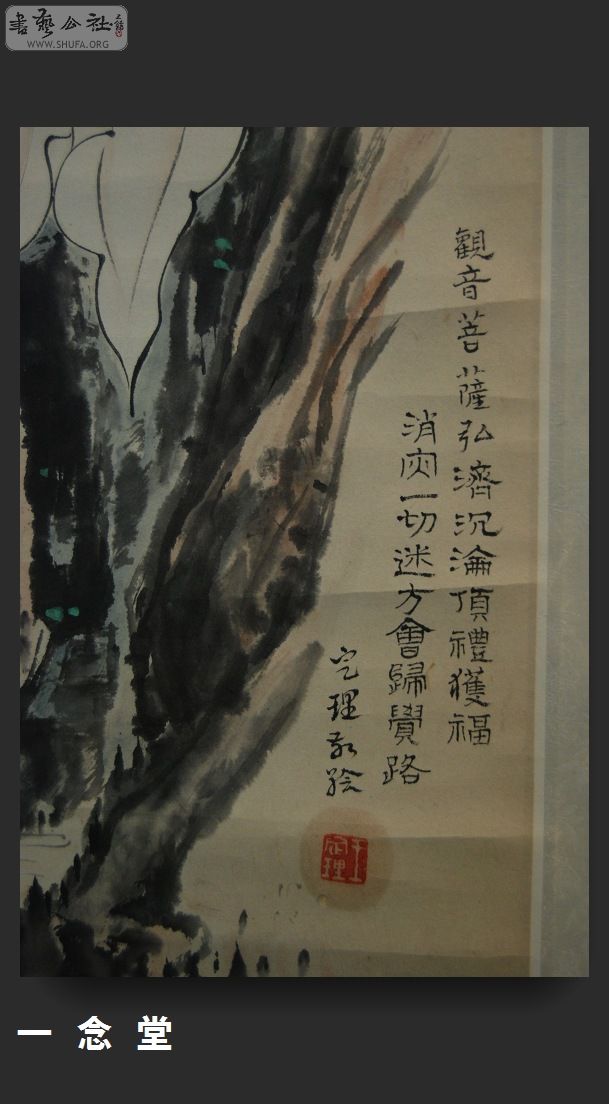 書藝公社
WWW.SHUFA.ORG
觀音菩薩弘濟沉淪頂禮獲福
消灾一切迷方會歸覺路
定理敬繪
王定理
一念堂